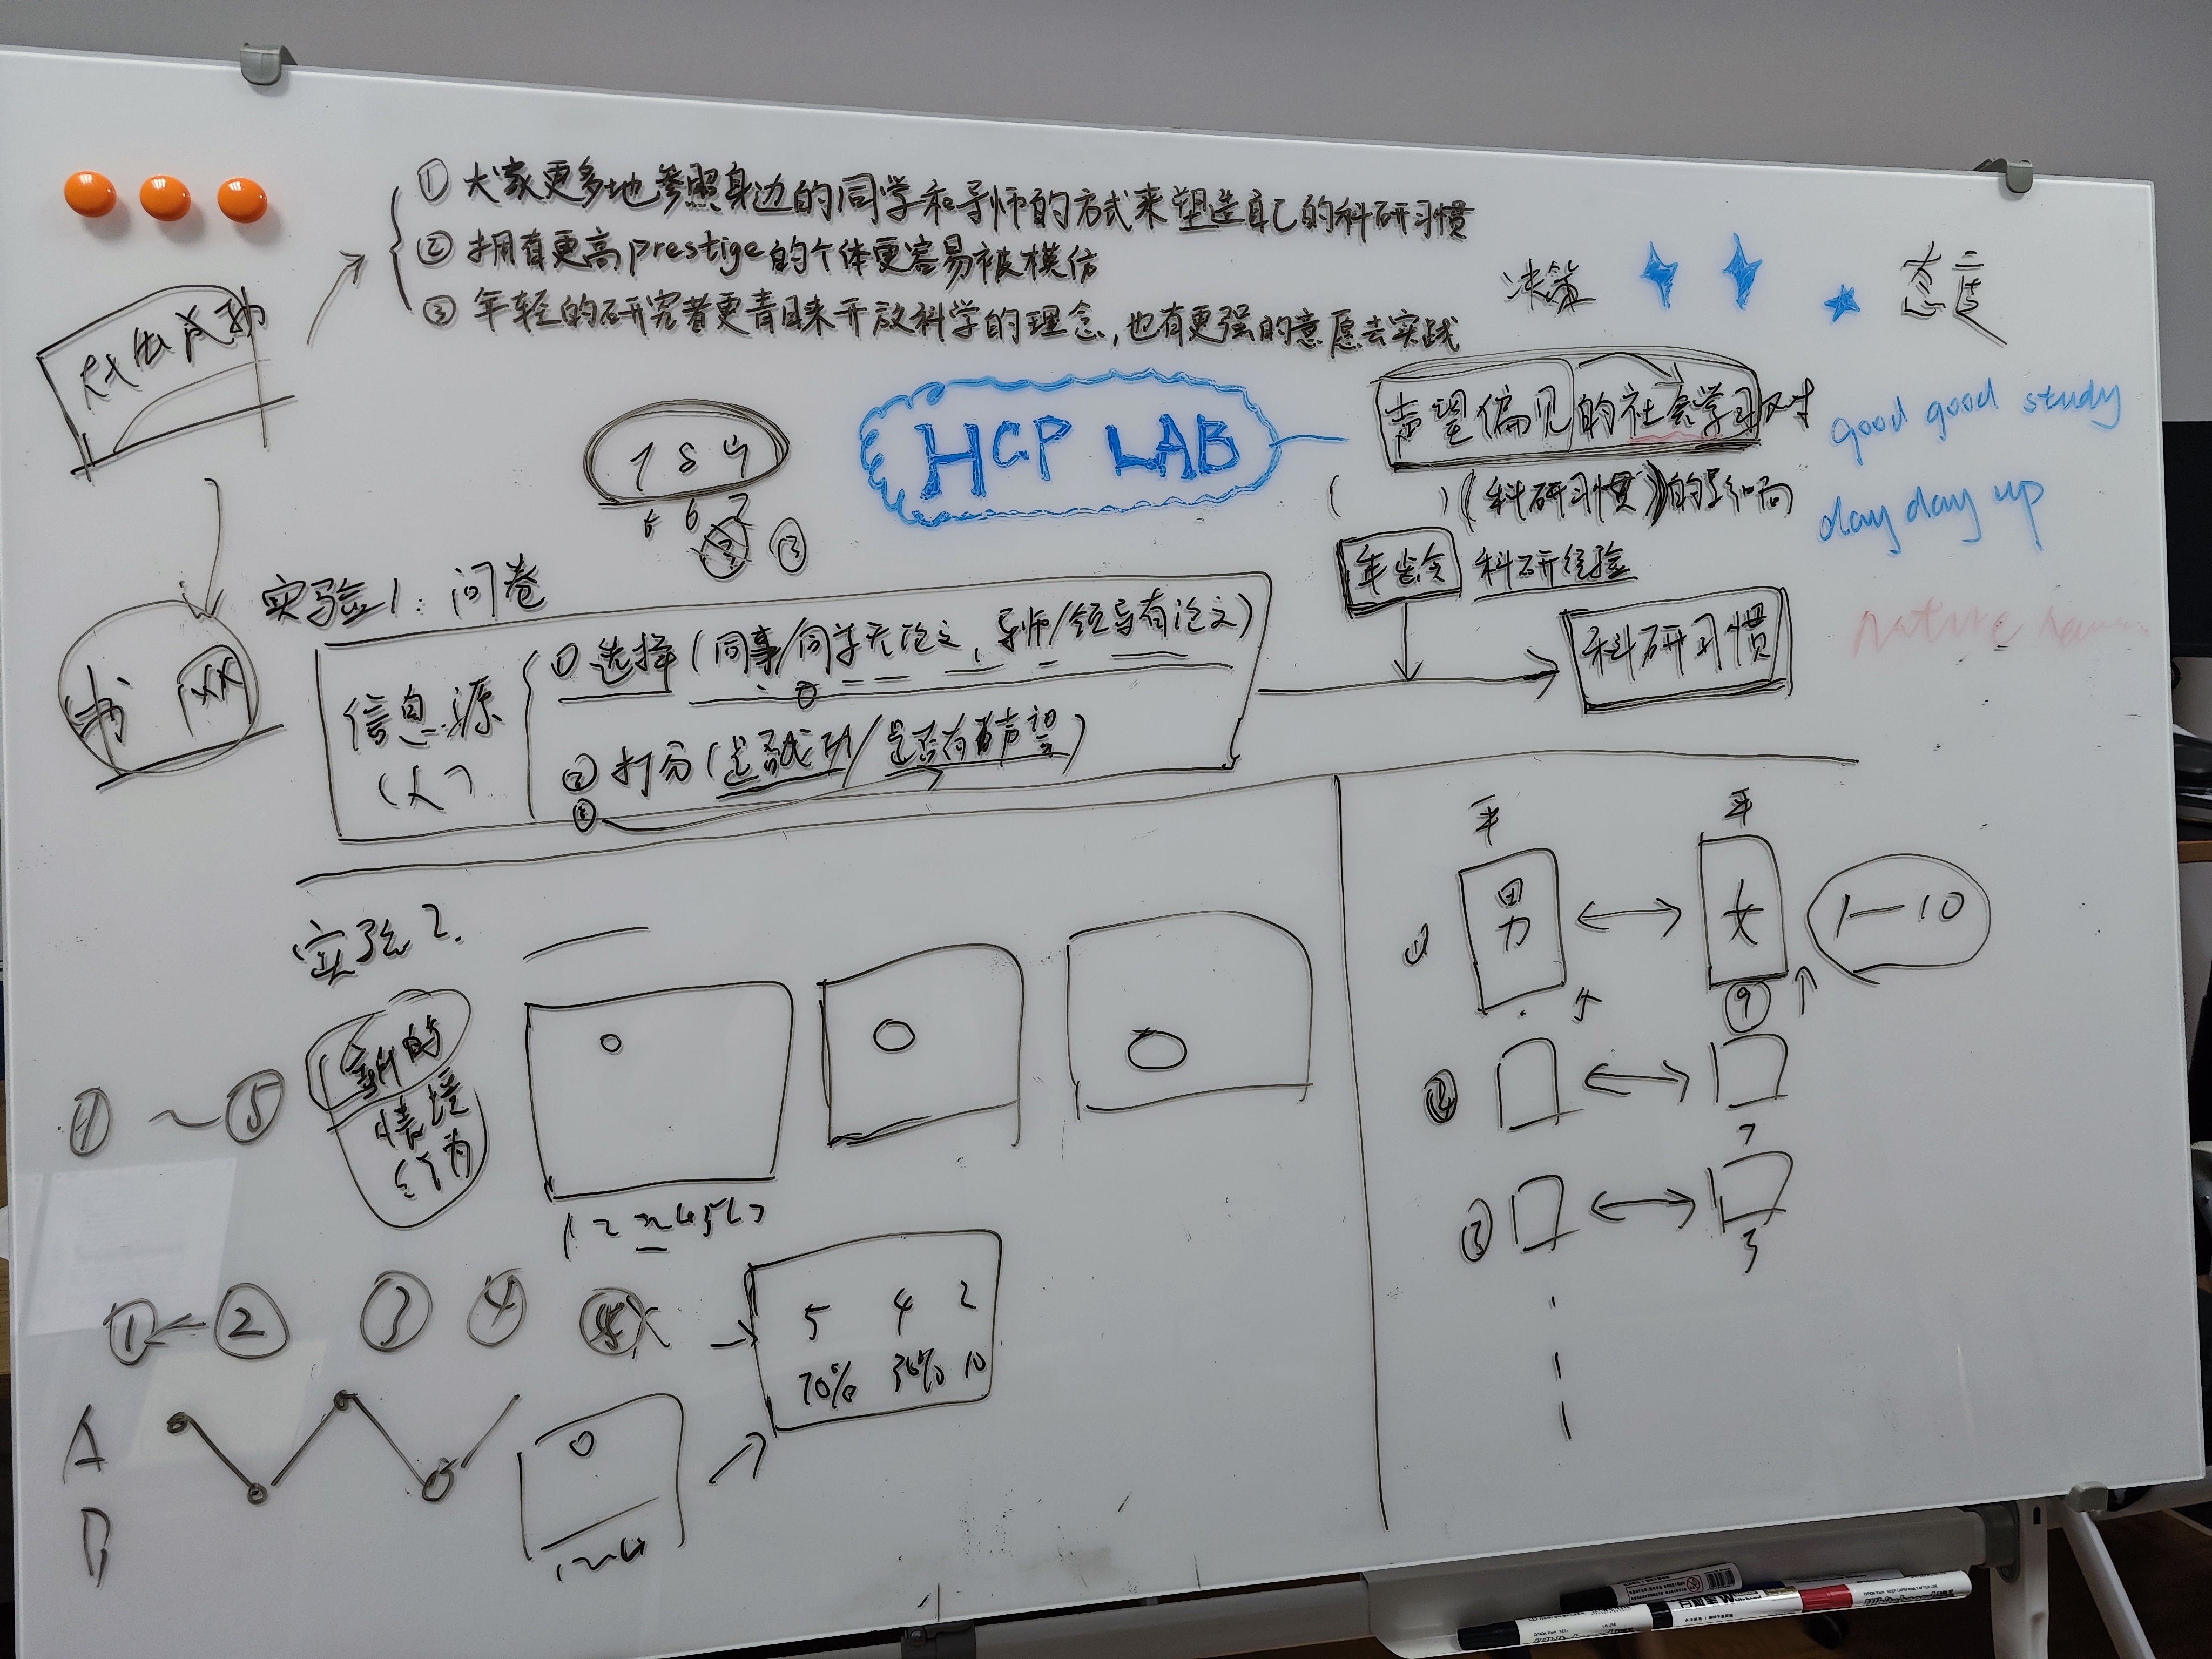 ① 大家更多地参照身边的同学和导师的方式来塑造自己的科研习惯
② 拥有更高prestige的个体更容易被模仿
③ 年轻的研究者更青睐开放科学的理念,也有更强的意愿去实践
决策
态度
HCP LAB
声望偏见的社会学习对
(科研习惯)的影响
good good study
day day up
年龄 科研经验
科研习惯
书
实验1: 问卷
信息源
(人)
① 选择(同事/同学无论文, 导师/领导有论文)
② 打分(是否成功/是否有声望)
③
实验2.
新的
情境
行为
① ~ ⑤
① ② ③ ④
5 4 2
70% 30% 10
A
平 平
① 男 女 1—10
9
②
7
③